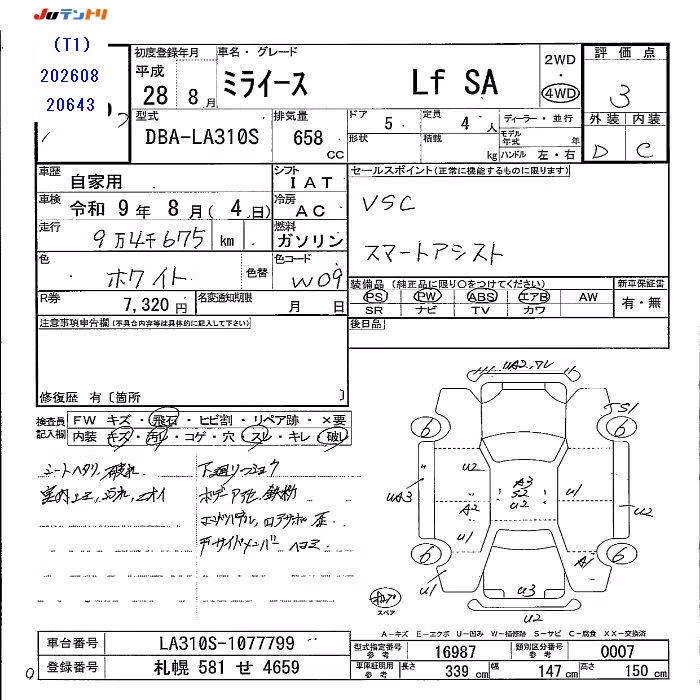 JUテントリ
(T1)
202608
20643
初度登録年月
平成
28 8月
車名・グレード
ミライース Lf SA
2WD
・
4WD
評価点
3
外装 内装
D C
型式
DBA-LA310S
排気量
658
CC
ドア
5
形状
定員
4 人
積載
kg
ディーラー・並行
モデル年式 年
ハンドル 左・右
車歴 自家用
シフト IAT
車検 令和 9年 8月(4日)
冷房 AC
走行 9万4千675 km
燃料 ガソリン
色 ホワイト 色替
色コード W09
R券 7,320円
名変通知期限 月 日
セールスポイント(正常に機能するものに限ります)
VSC
スマートアシスト
装備品 (純正品に限り○をつけてください)
PS PW ABS エアB AW
SR ナビ TV カワ
新車保証書
有・無
後日品
注意事項申告欄(不具合内容等は具体的に記入して下さい)
修復歴 有〔箇所 〕
検査員記入欄
FW キズ・飛石・ヒビ割・リペア跡・×要
内装 キズ・汚レ・コゲ・穴・スレ・キレ・破レ
シートヘタリ、破れ、
下廻リ
ヘコミ
UA2,
S1
6
6
U2
A3
S2
U2
U1
UA3
A2
U2
U1
6
6
A1
U1
U3
スペア
A-キズ E-エクボ U-凹み W-補修跡 S-サビ C-腐食 XX-交換済
車台番号 LA310S-1077799
登録番号 札幌 581 せ 4659
型式指定番号 参考 16987
類別区分番号 参考 0007
車庫証明用 参考 長さ 339cm 幅 147cm 高さ 150cm